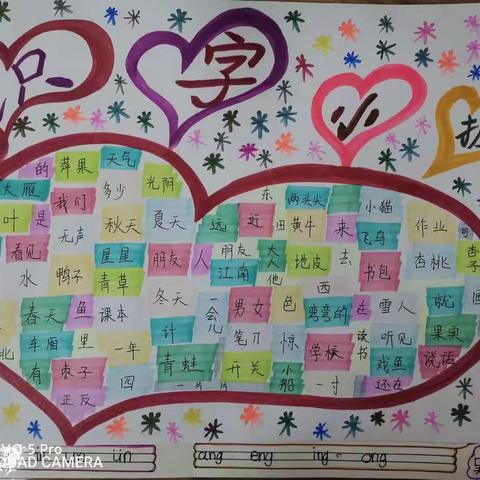 识 字 小 报
的 苹果 天气
大雁 我们 多少 光阴 东 两头尖 小猫
叶 是 无声 秋天 夏天 远 近 田 黄牛 来 飞鸟 作业
看见 星星 朋友 人 朋友 大人 地皮 去 书包 杏桃 杏子
水 鸭子 青草 江南 他 西
春天 鱼 课本 冬天 一会儿 男女 色 弯弯的 在 雪人 就
车厢 里 一年 计 笔刀 惊 学校 读书 听见 果实
北 有 枣子 四 青蛙 开关 小船 一寸 戏鱼 还在 说话
正反 一片片
ün ang eng ing ong
5 Pro
AD CAMERA